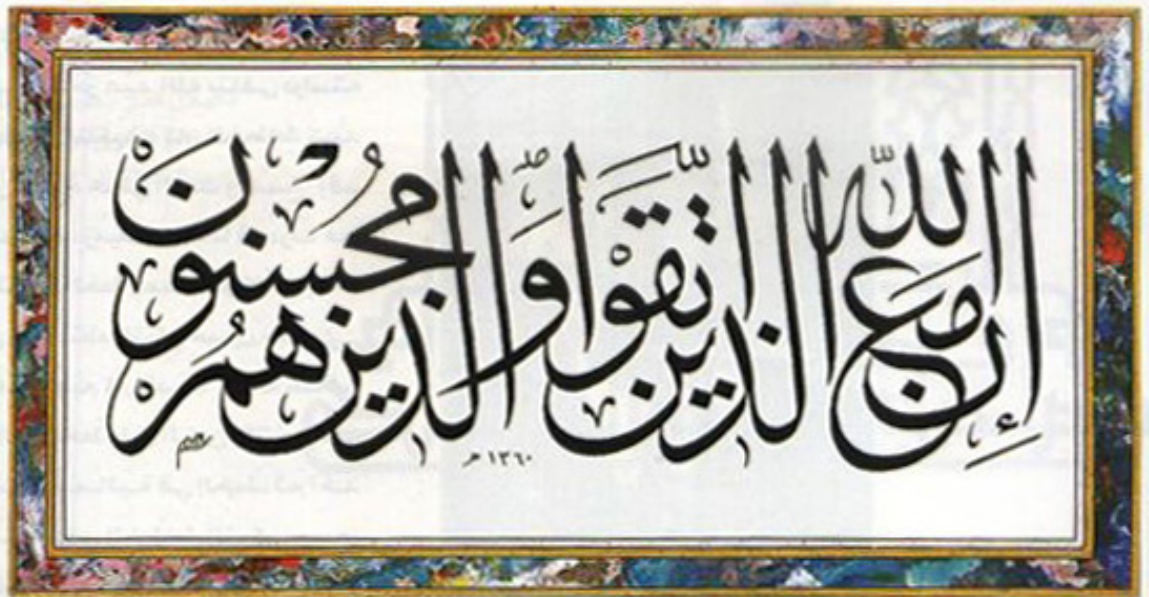 إِنَّ اللّٰهَ مَعَ الَّذِينَ اتَّقَوْا وَّالَّذِينَ هُمْ مُحْسِنُونَ
١٣٦٠ هـ